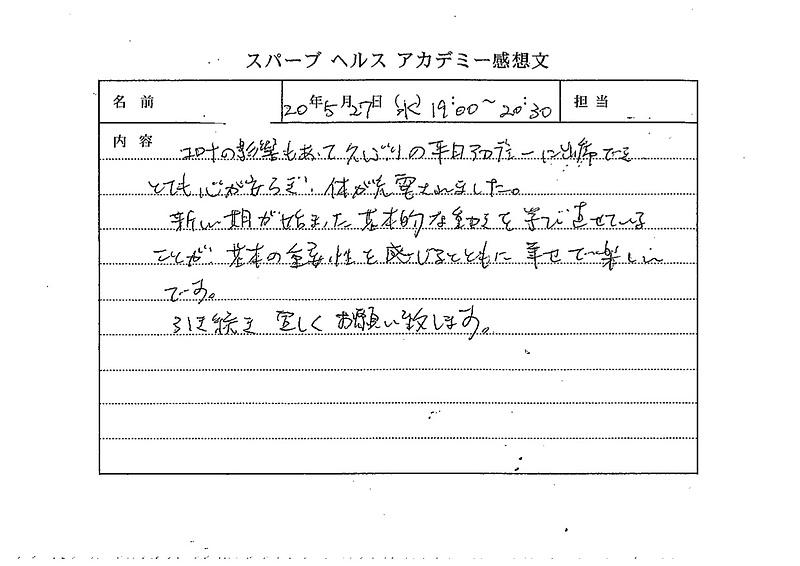 スパーブ ヘルス アカデミー感想文
名 前
20年5月27日 (水) 19:00~20:30
担 当
内 容
コロナの影響もあって久しぶりの平日アカデミーに出席でき
とても心が安らぎ、体が充電されました。
新しい期が始まった基本的な動きを学び直せている
ことが、基本の重要性を感じるとともに幸せで楽しい
です。
引き続き宜しくお願い致します。